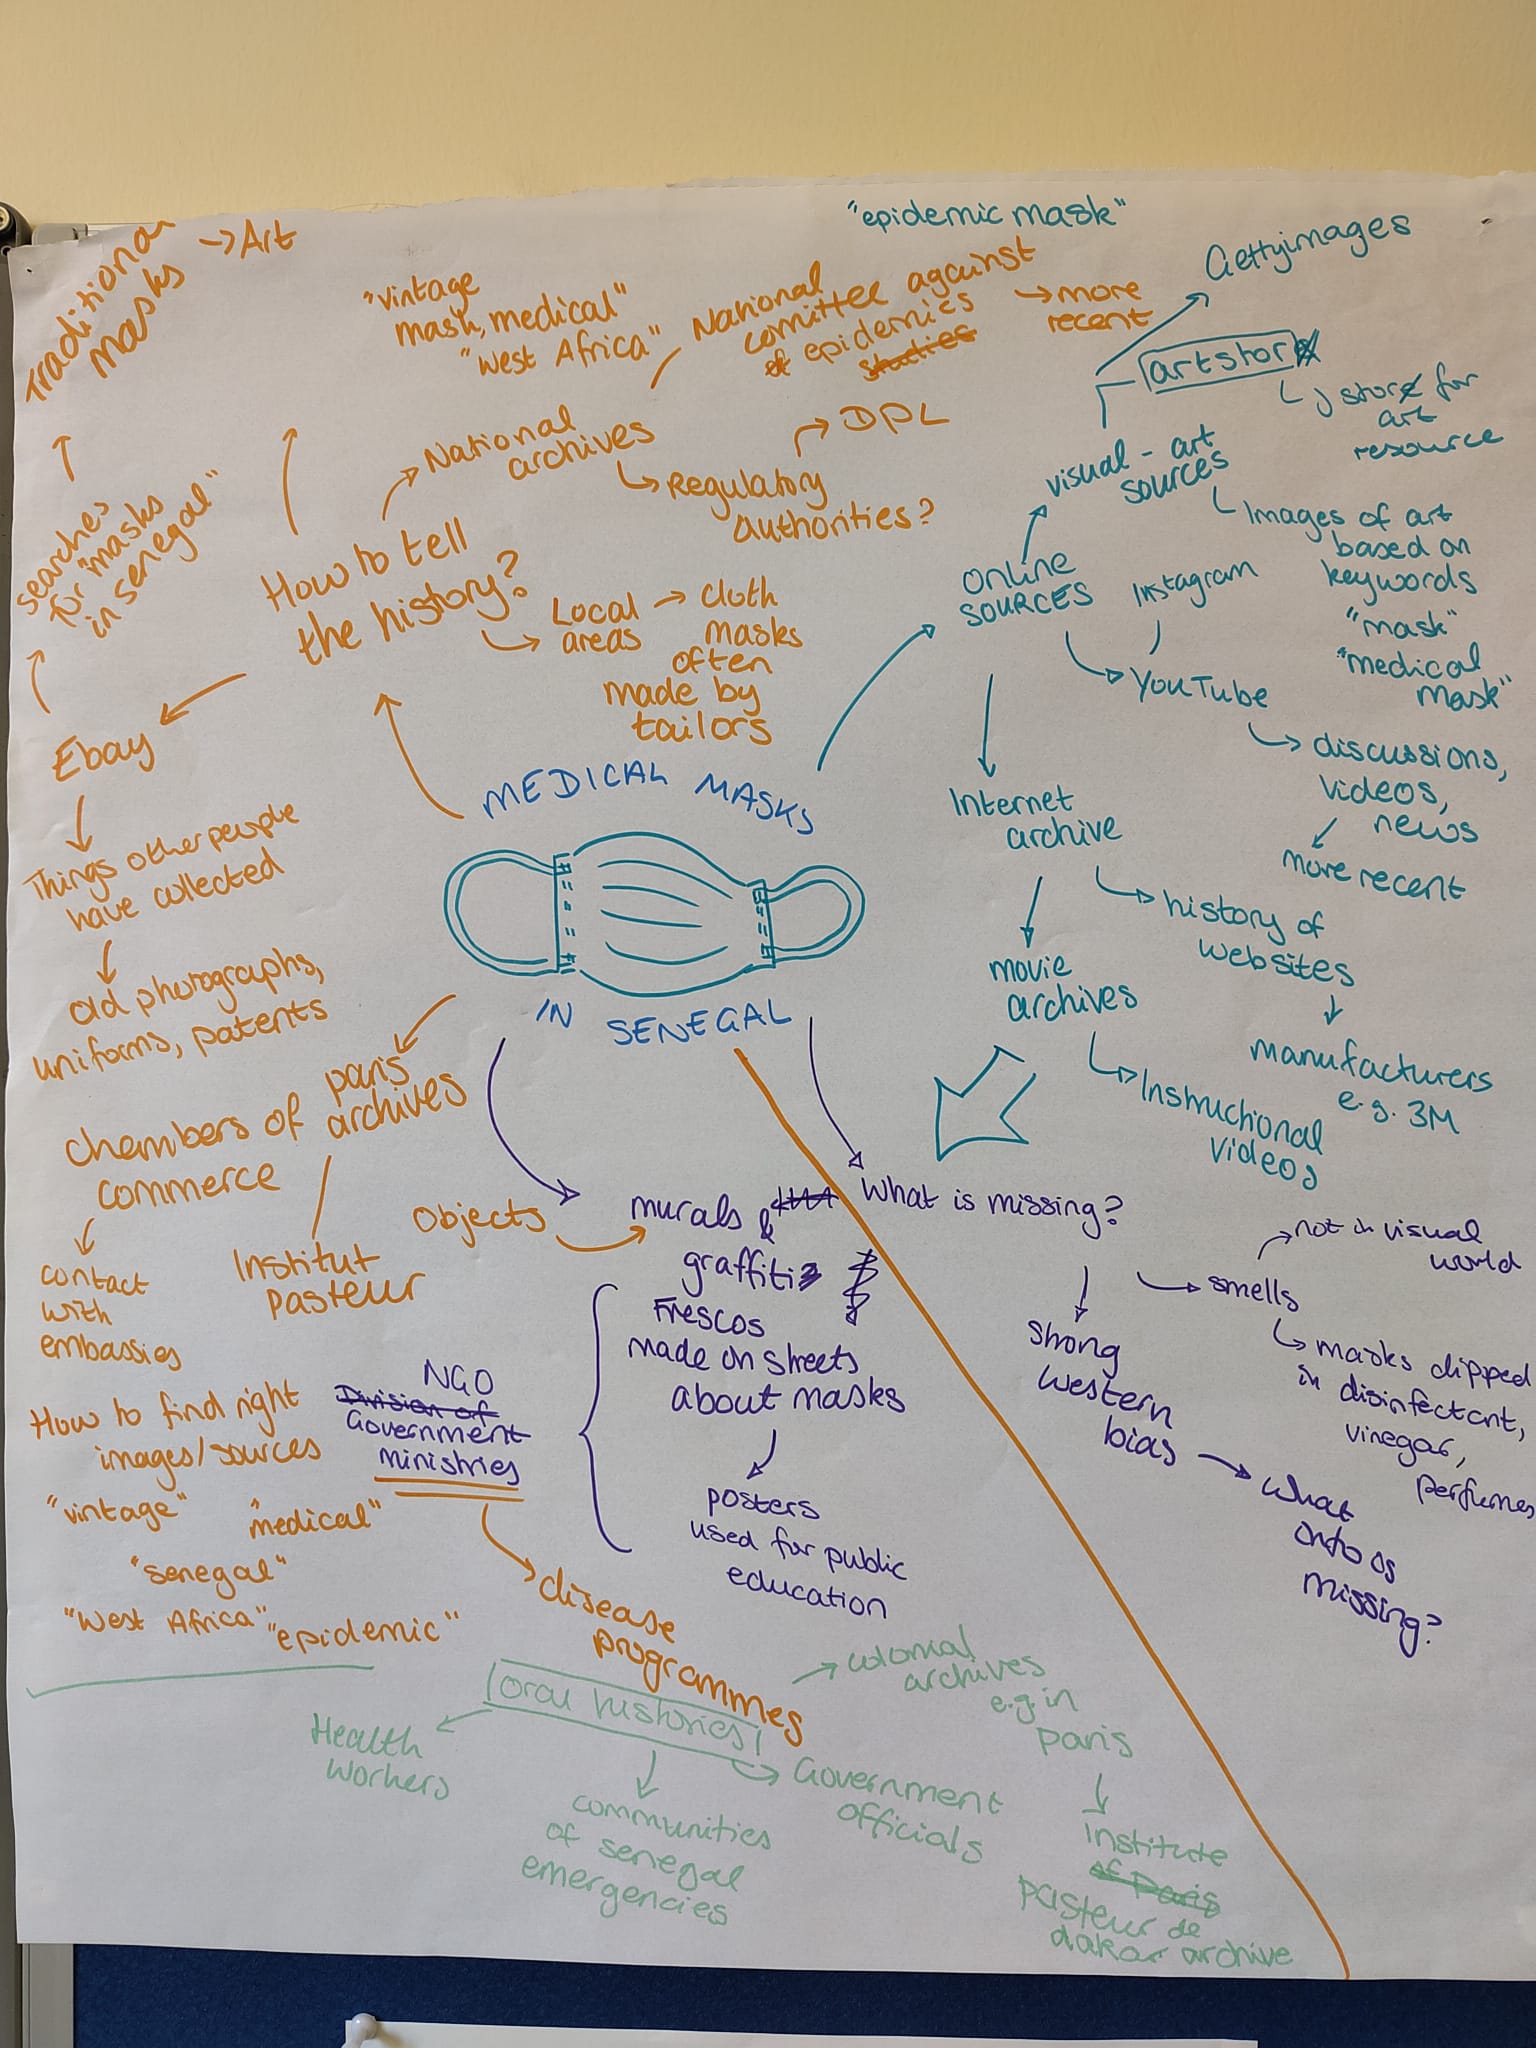 Traditional
masks
→ Art
"vintage
mask, medical"
"West Africa"
National
comittee against
of epidemics
studies
→ more
recent
"epidemic mask"
Gettyimages
artstor
Jstor for
art
resource
visual-art
sources
Images of art
based on
keywords
"mask"
"medical
mask"
searches
for "masks
in senegal"
How to tell
the history?
National
archives
Regulatory
authorities?
DPL
Local
areas
→ cloth
masks
often
made by
tailors
ONLINE
SOURCES
Instagram
YouTube
discussions,
videos,
news
more recent
Internet
archive
history of
websites
manufacturers
e.g. 3M
movie
archives
Instructional
videos
Ebay
Things other people
have collected
old photographs,
uniforms, patents
MEDICAL MASKS
IN SENEGAL
paris
archives
chambers of
commerce
contact
with
embassies
Institut
Pasteur
Objects
murals &
graffiti
Frescos
made on streets
about masks
posters
used for public
education
What is missing?
smells
not in visual
world
masks dipped
in disinfectant,
vinegar,
perfumes
Strong
western
bias
what
is
missing?
How to find right
images/sources
"vintage"
"medical"
"senegal"
"West Africa"
"epidemic"
NGO
Division of
Government
ministries
disease
programmes
oral histories
Health
workers
communities
of senegal
emergencies
Government
officials
colonial
archives
e.g. in
paris
Institute
of Paris
pasteur de
dakar archive